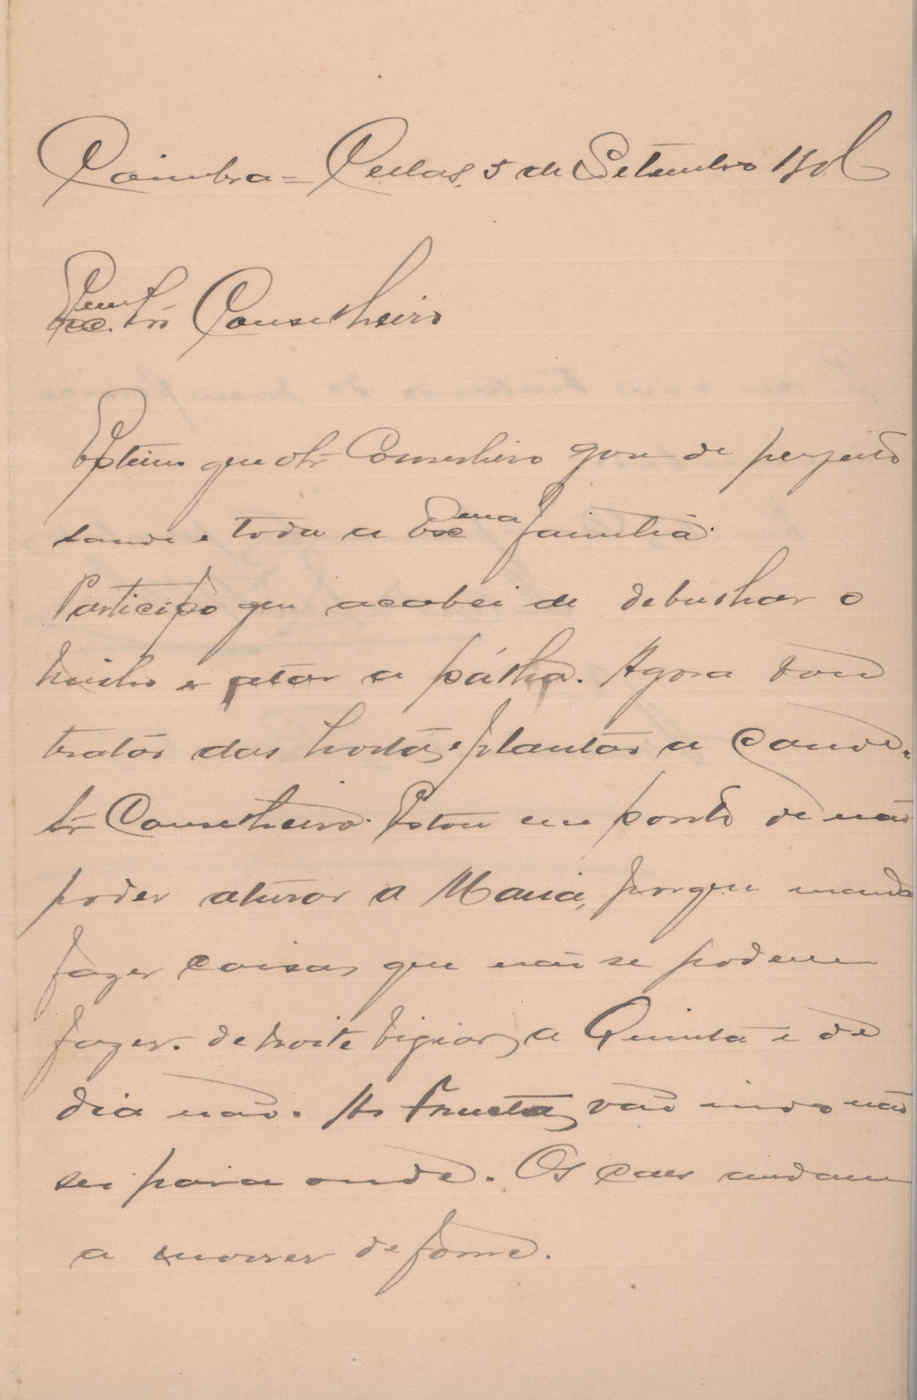 Coimbra = Cellas, 5 de Setembro 190
Exc.mo Sr Conselheiro
Estimo que o Sr Conselheiro gose de perfeito
saude e toda a Exc.ma Familia.
Participo que acabei de debulhar o
milho e atar a pálha. Agora vou
tratar das hortas, e plantar a couve.
Sr Conselheiro. Estou em ponto de não
poder aturar a Maria, porque manda
fazer coisas que não se podem
fazer. de noite vigiar a Quinta e de
dia não. As fructas, vão indo não
sei para onde. Os caes andam
a morrer de fome.